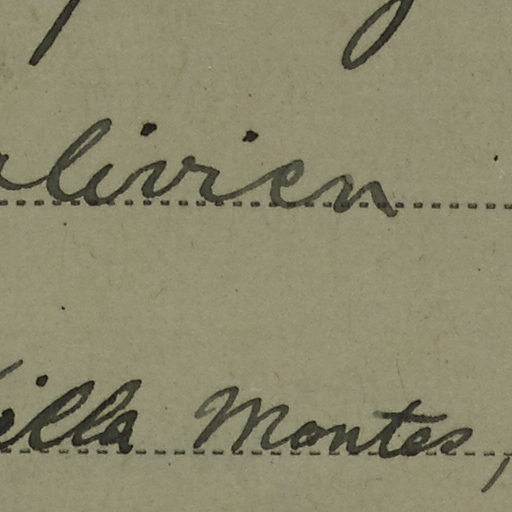 olivien
Villa Montes,